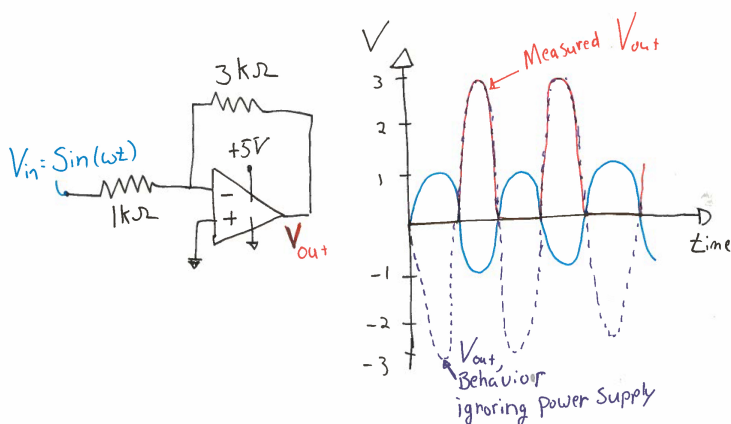 3kΩ
+5V
Vin = Sin(ωt)
1kΩ
−
+
Vout
V
Measured Vout
3
2
1
-1
-2
-3
time
Vout,
Behavior
ignoring power supply